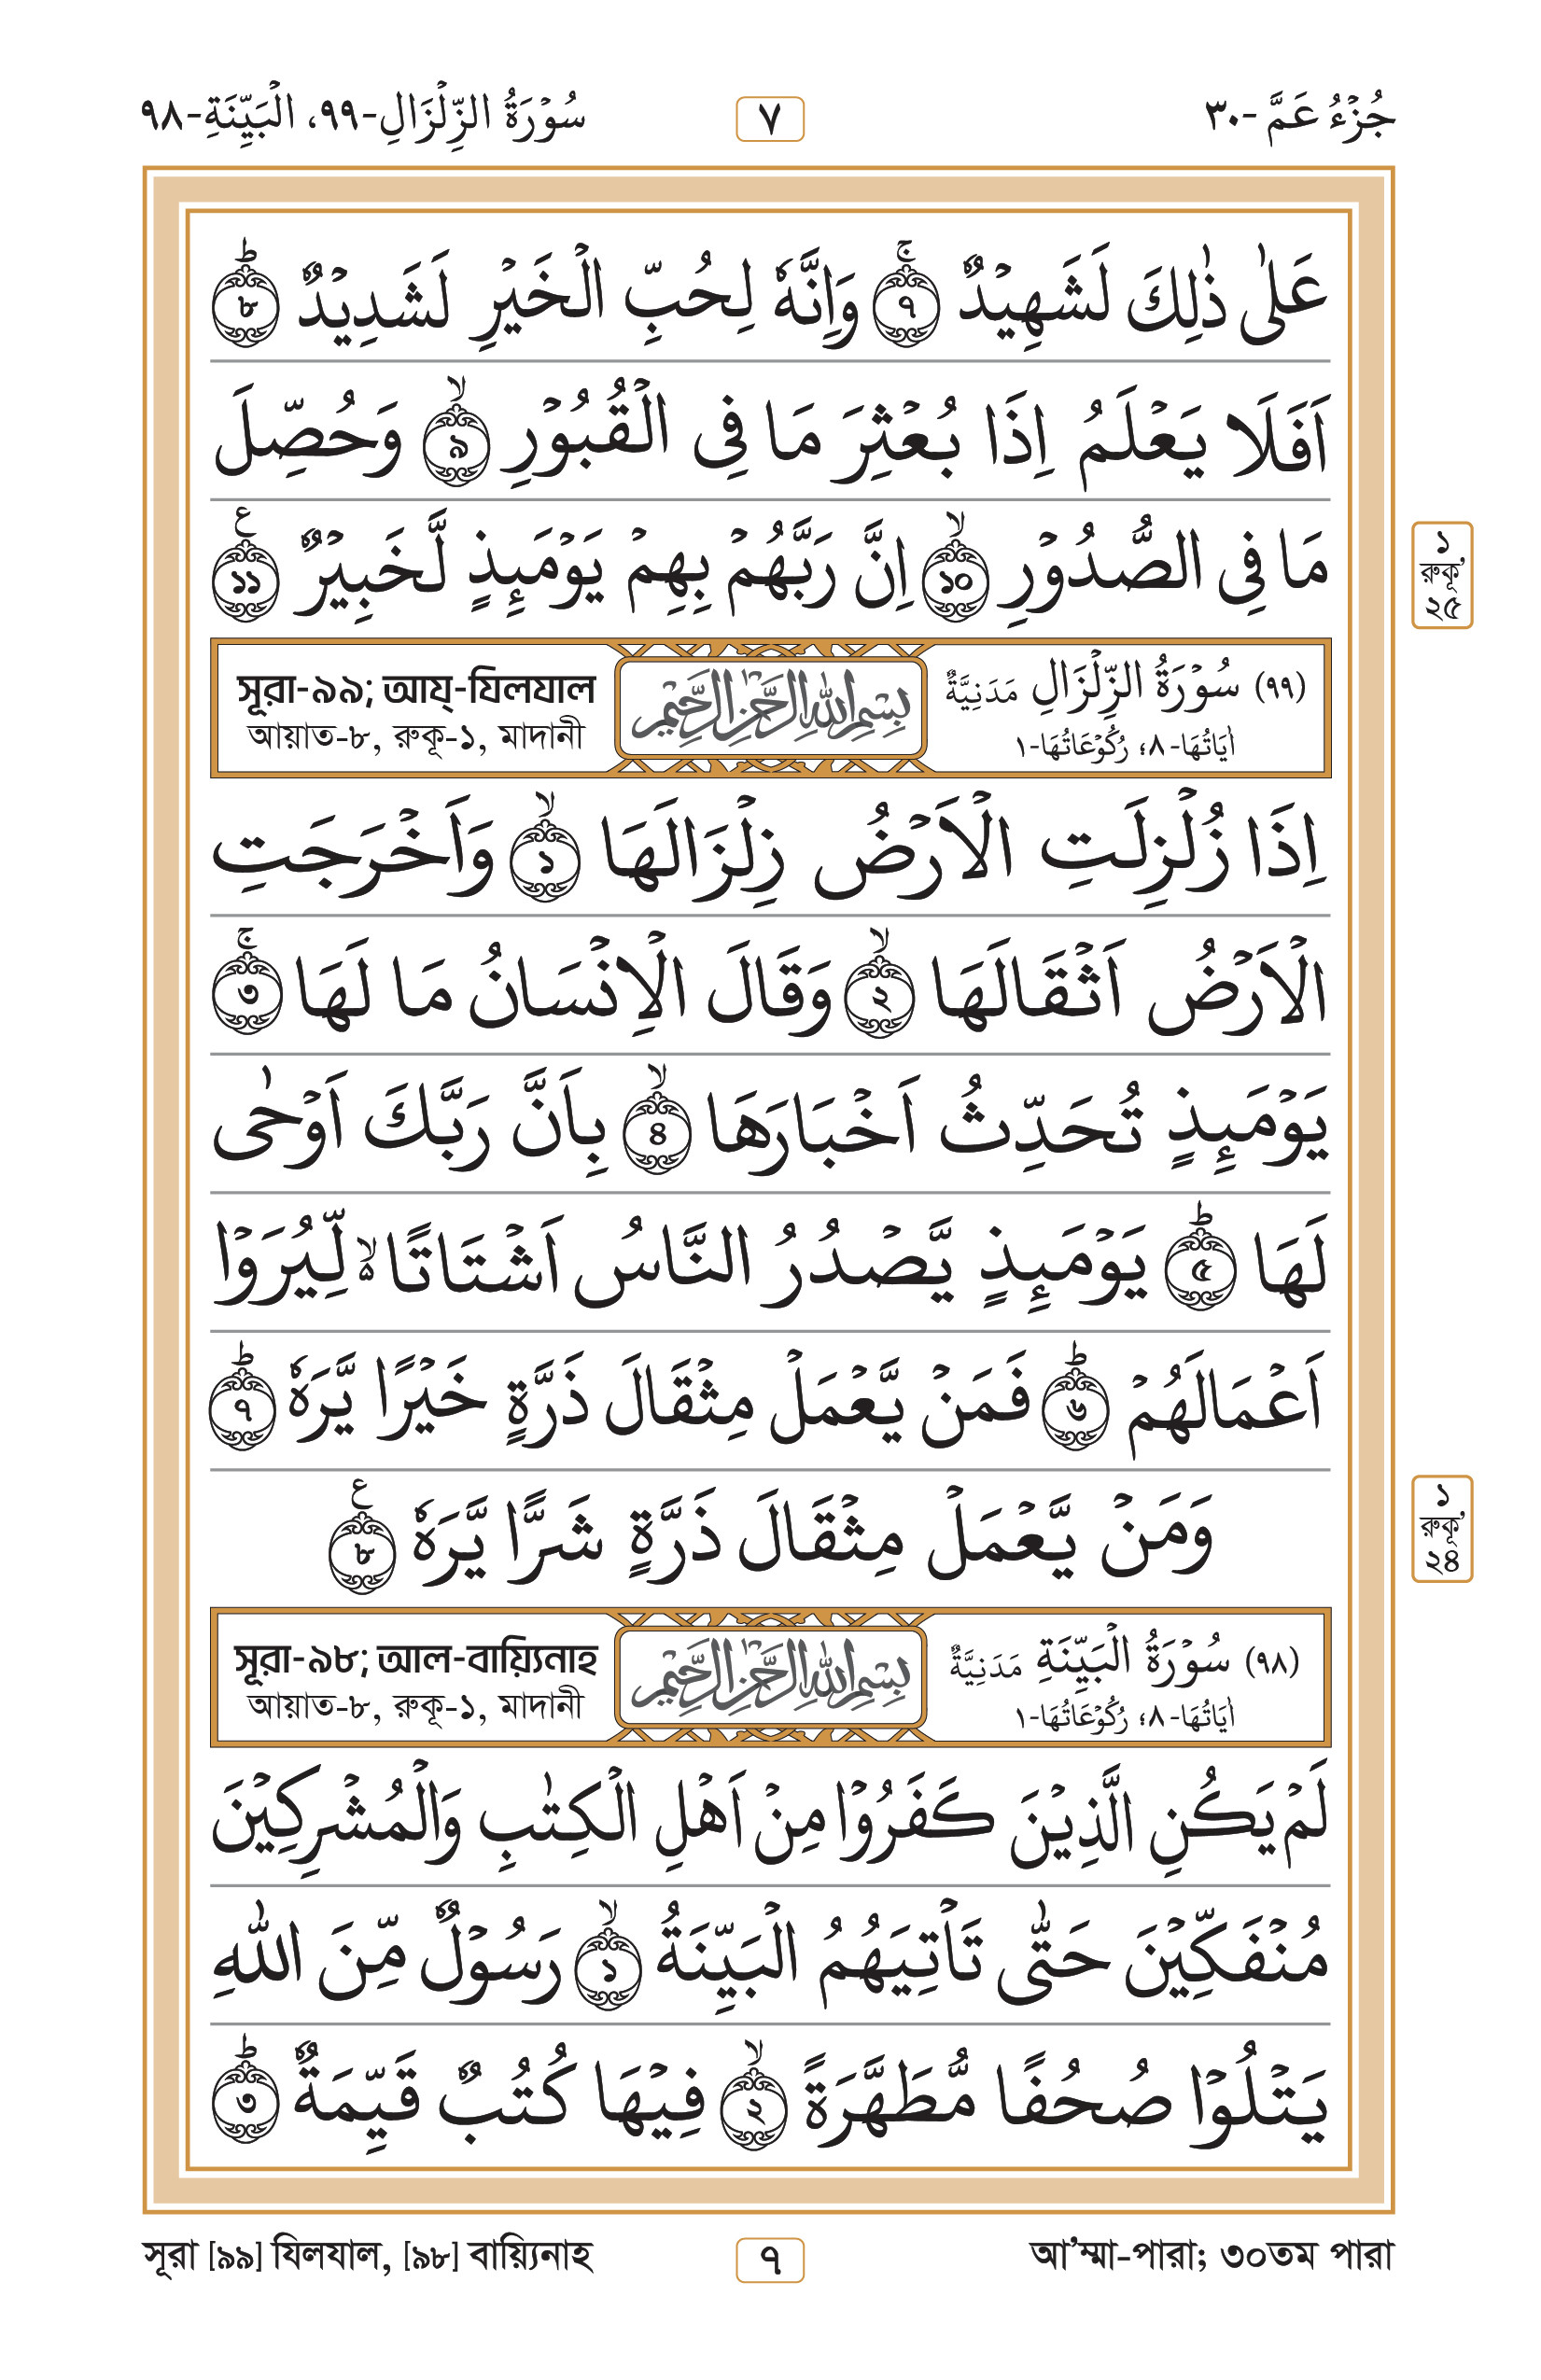 جُزْءُ عَمَّ -٣٠
٧
سُوْرَةُ الزِّلْزَالِ-٩٩، الْبَيِّنَةِ-٩٨
عَلٰى ذٰلِكَ لَشَهِيْدٌ ৭ۚ وَاِنَّهٗ لِحُبِّ الْخَيْرِ لَشَدِيْدٌ ৮ؕ
اَفَلَا يَعْلَمُ اِذَا بُعْثِرَ مَا فِى الْقُبُوْرِ ৯ۙ وَحُصِّلَ
مَا فِى الصُّدُوْرِ ১০ۙ اِنَّ رَبَّهُمْ بِهِمْ يَوْمَىِٕذٍ لَّخَبِيْرٌ ১১ع
১
রুকূ'
২৫
(٩٩) سُوْرَةُ الزِّلْزَالِ مَدَنِيَّةٌ
اٰيَاتُهَا-٨؛ رُكُوْعَاتُهَا-١
بِسْمِ اللهِ الرَّحْمٰنِ الرَّحِيْمِ
সূরা-৯৯; আয্-যিলযাল
আয়াত-৮, রুকূ-১, মাদানী
اِذَا زُلْزِلَتِ الْاَرْضُ زِلْزَالَهَا ১ۙ وَاَخْرَجَتِ
الْاَرْضُ اَثْقَالَهَا ২ۙ وَقَالَ الْاِنْسَانُ مَا لَهَا ৩ۚ
يَوْمَىِٕذٍ تُحَدِّثُ اَخْبَارَهَا ৪ۙ بِاَنَّ رَبَّكَ اَوْحٰى
لَهَا ৫ؕ يَوْمَىِٕذٍ يَّصْدُرُ النَّاسُ اَشْتَاتًا ۙ۬ لِّيُرَوْا
اَعْمَالَهُمْ ৬ؕ فَمَنْ يَّعْمَلْ مِثْقَالَ ذَرَّةٍ خَيْرًا يَّرَهٗ ৭ؕ
وَمَنْ يَّعْمَلْ مِثْقَالَ ذَرَّةٍ شَرًّا يَّرَهٗ ৮ع
১
রুকূ'
২৪
(٩٨) سُوْرَةُ الْبَيِّنَةِ مَدَنِيَّةٌ
اٰيَاتُهَا-٨؛ رُكُوْعَاتُهَا-١
بِسْمِ اللهِ الرَّحْمٰنِ الرَّحِيْمِ
সূরা-৯৮; আল-বায়্যিনাহ
আয়াত-৮, রুকূ-১, মাদানী
لَمْ يَكُنِ الَّذِيْنَ كَفَرُوْا مِنْ اَهْلِ الْكِتٰبِ وَالْمُشْرِكِيْنَ
مُنْفَكِّيْنَ حَتّٰى تَاْتِيَهُمُ الْبَيِّنَةُ ১ۙ رَسُوْلٌ مِّنَ اللّٰهِ
يَتْلُوْا صُحُفًا مُّطَهَّرَةً ২ۙ فِيْهَا كُتُبٌ قَيِّمَةٌ ৩ؕ
সূরা [৯৯] যিলযাল, [৯৮] বায়্যিনাহ
৭
আ'ম্মা-পারা; ৩০তম পারা